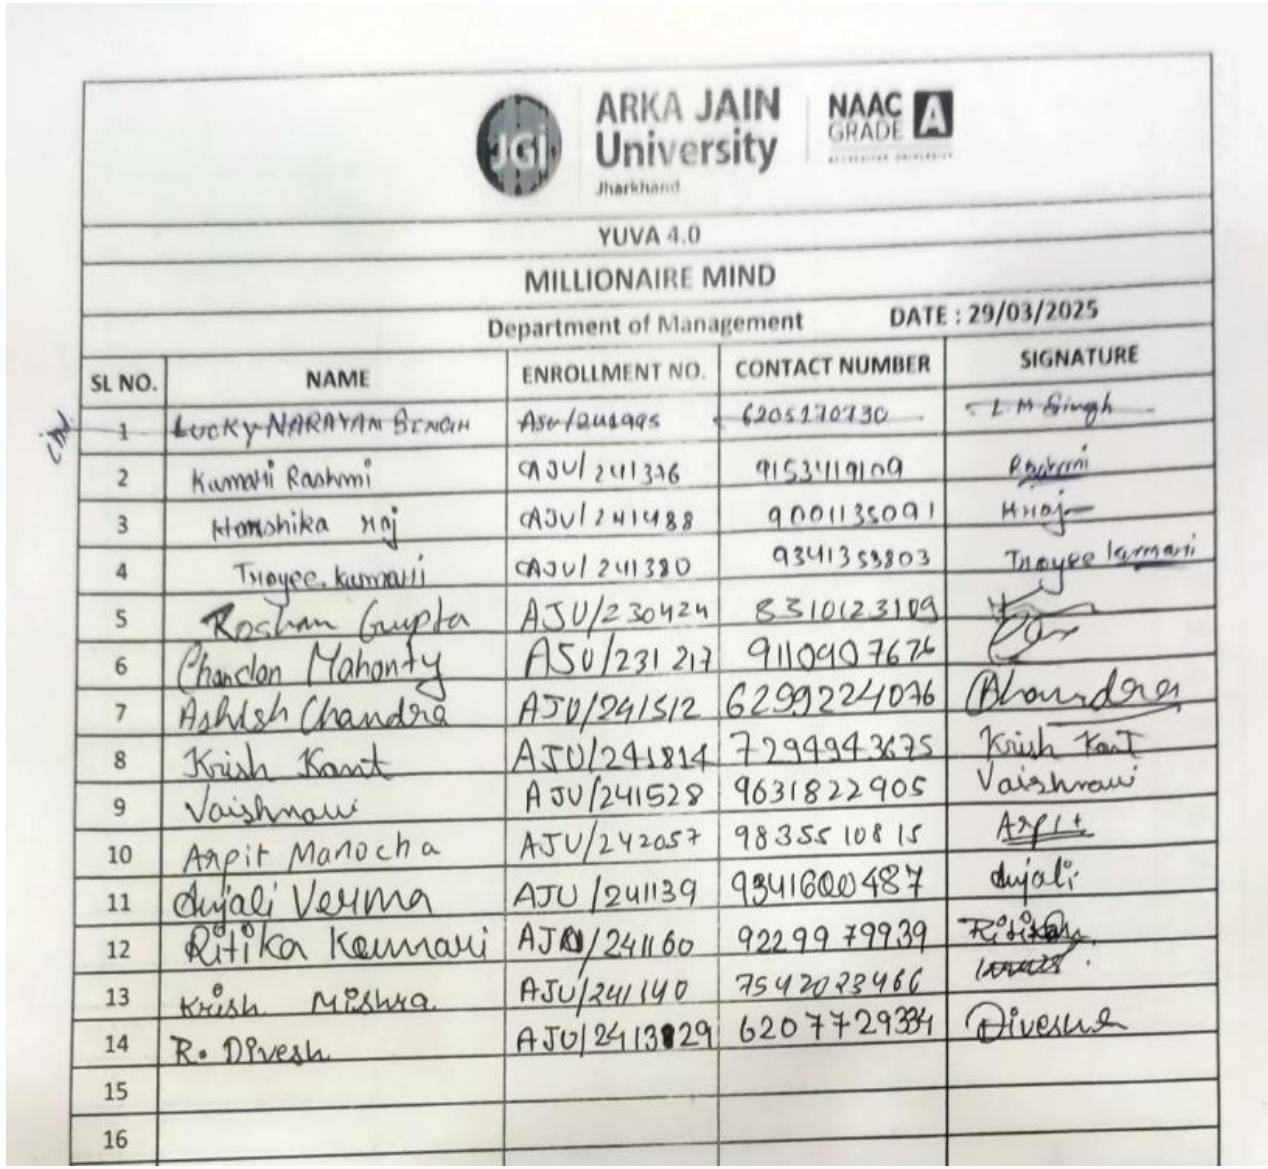 JGi ARKA JAIN University Jharkhand NAAC GRADE A
ACCREDITED UNIVERSITY
YUVA 4.0
MILLIONAIRE MIND
Department of Management DATE : 29/03/2025
SL NO. NAME ENROLLMENT NO. CONTACT NUMBER SIGNATURE
1 LUCKY NARAYAN SINGH 6205170730 L M Singh
2 Kumari Rashmi AJU/241336 9153419109 Rashmi
3 Hanshika raj AJU/241488 9001135091 Hraj
4 Troyee kumari AJU/241380 9341353803 Troyee kumari
5 Roshan Gupta AJU/230424 8310123109
6 Chandan Mahonty AJU/231217 9110907676
7 Ashish Chandra AJU/241512 6299224076 Chandra
8 Krish Kant AJU/241814 7294943675 Krish Kant
9 Vaishnavi AJU/241528 9631822905 Vaishnavi
10 Arpit Manocha AJU/242057 9835510815 Arpit
11 Anjali Verma AJU/241139 9341600487 Anjali
12 Ritika Kumari AJU/241160 9229979939 Ritika
13 Krish Mishra AJU/241140 7542023466
14 R. Divesh AJU/2413129 6207729334 Divesh
15
16